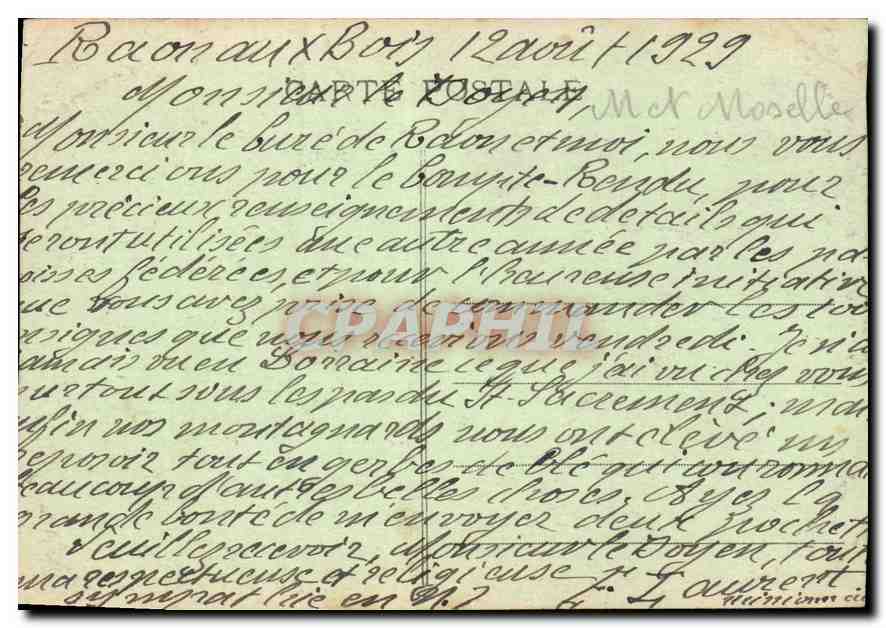 Raon aux Bois 12 août 1929
CARTE POSTALE
Monsieur le Doyen,
M et Moselle
Monsieur le Curé de Raon et moi, nous vous
remercions pour le Compte-Rendu, pour
les précieux renseignements de details qui
seront utilisées une autre année par les pa
oisses fédérées, et pour l'heureuse initiative
que vous avez prise de commander les
insignes que nous recevions vendredi. Je n'a
jamais vu en Lorraine ce que j'ai vu chez vous
surtout sous les pas du St-Sacrement; mai
enfin nos montagnards nous ont élevé un
reposoir tout en gerbes de blé qui couronna
beaucoup d'autres belles choses. Ayez la
grande bonté de m'envoyer deux pochet
Veuillez recevoir, Monsieur le Doyen, tout
ma respectueuse et religieuse
sympathie en N.S. Laurent
CPAPHIL